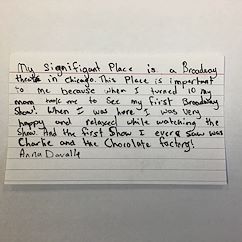 My signifigant Place is a Broadway
theatre in Chicago. This Place is important
to me because when I turned 10 my
mom took me to see my first Broadway
Show! When I was here I was very
happy and relaxed while watching the
Show. And the first Show I ever saw was
Charlie and the Chocolate factory!
Anna